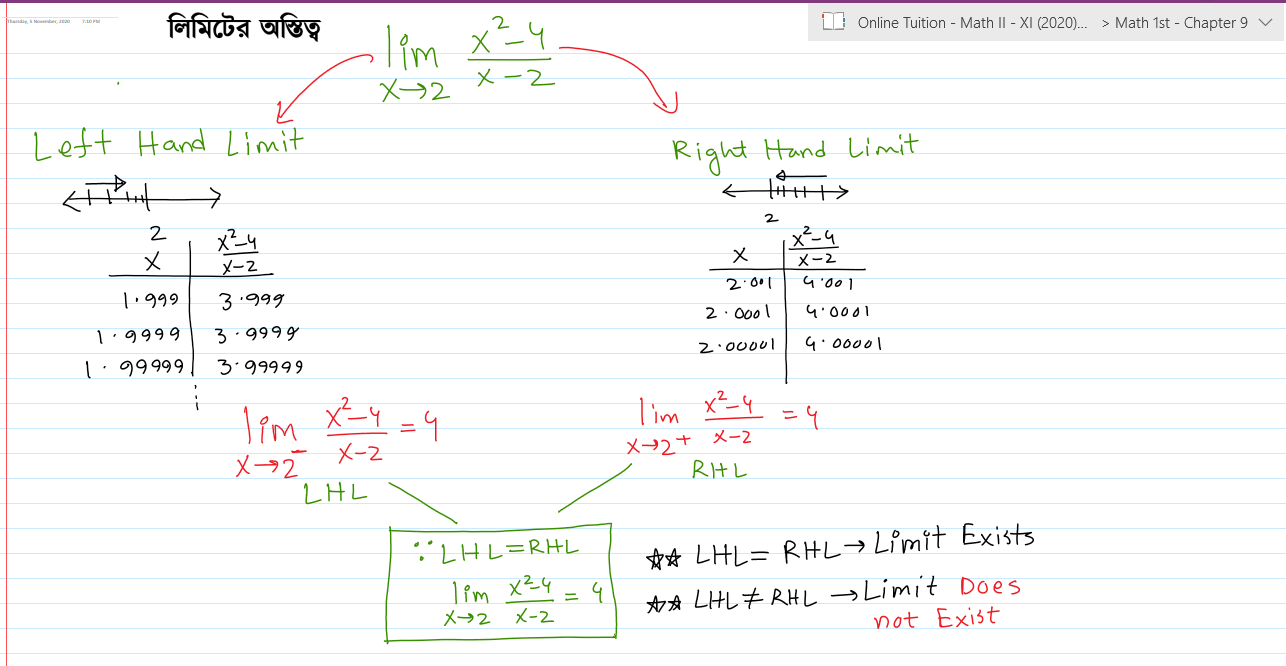 Thursday, 5 November, 2020 7:10 PM
Online Tuition - Math II - XI (2020)... > Math 1st - Chapter 9
লিমিটের অস্তিত্ব
lim x→2 (x²-4)/(x-2)
Left Hand Limit
2
x | (x²-4)/(x-2)
1.999 | 3.999
1.9999 | 3.9999
1.99999 | 3.99999
lim x→2⁻ (x²-4)/(x-2) = 4
LHL
Right Hand Limit
2
x | (x²-4)/(x-2)
2.001 | 4.001
2.0001 | 4.0001
2.00001 | 4.00001
lim x→2+ (x²-4)/(x-2) = 4
RHL
∵ LHL = RHL
lim x→2 (x²-4)/(x-2) = 4
☆☆ LHL = RHL → Limit Exists
☆☆ LHL ≠ RHL → Limit Does
not Exist